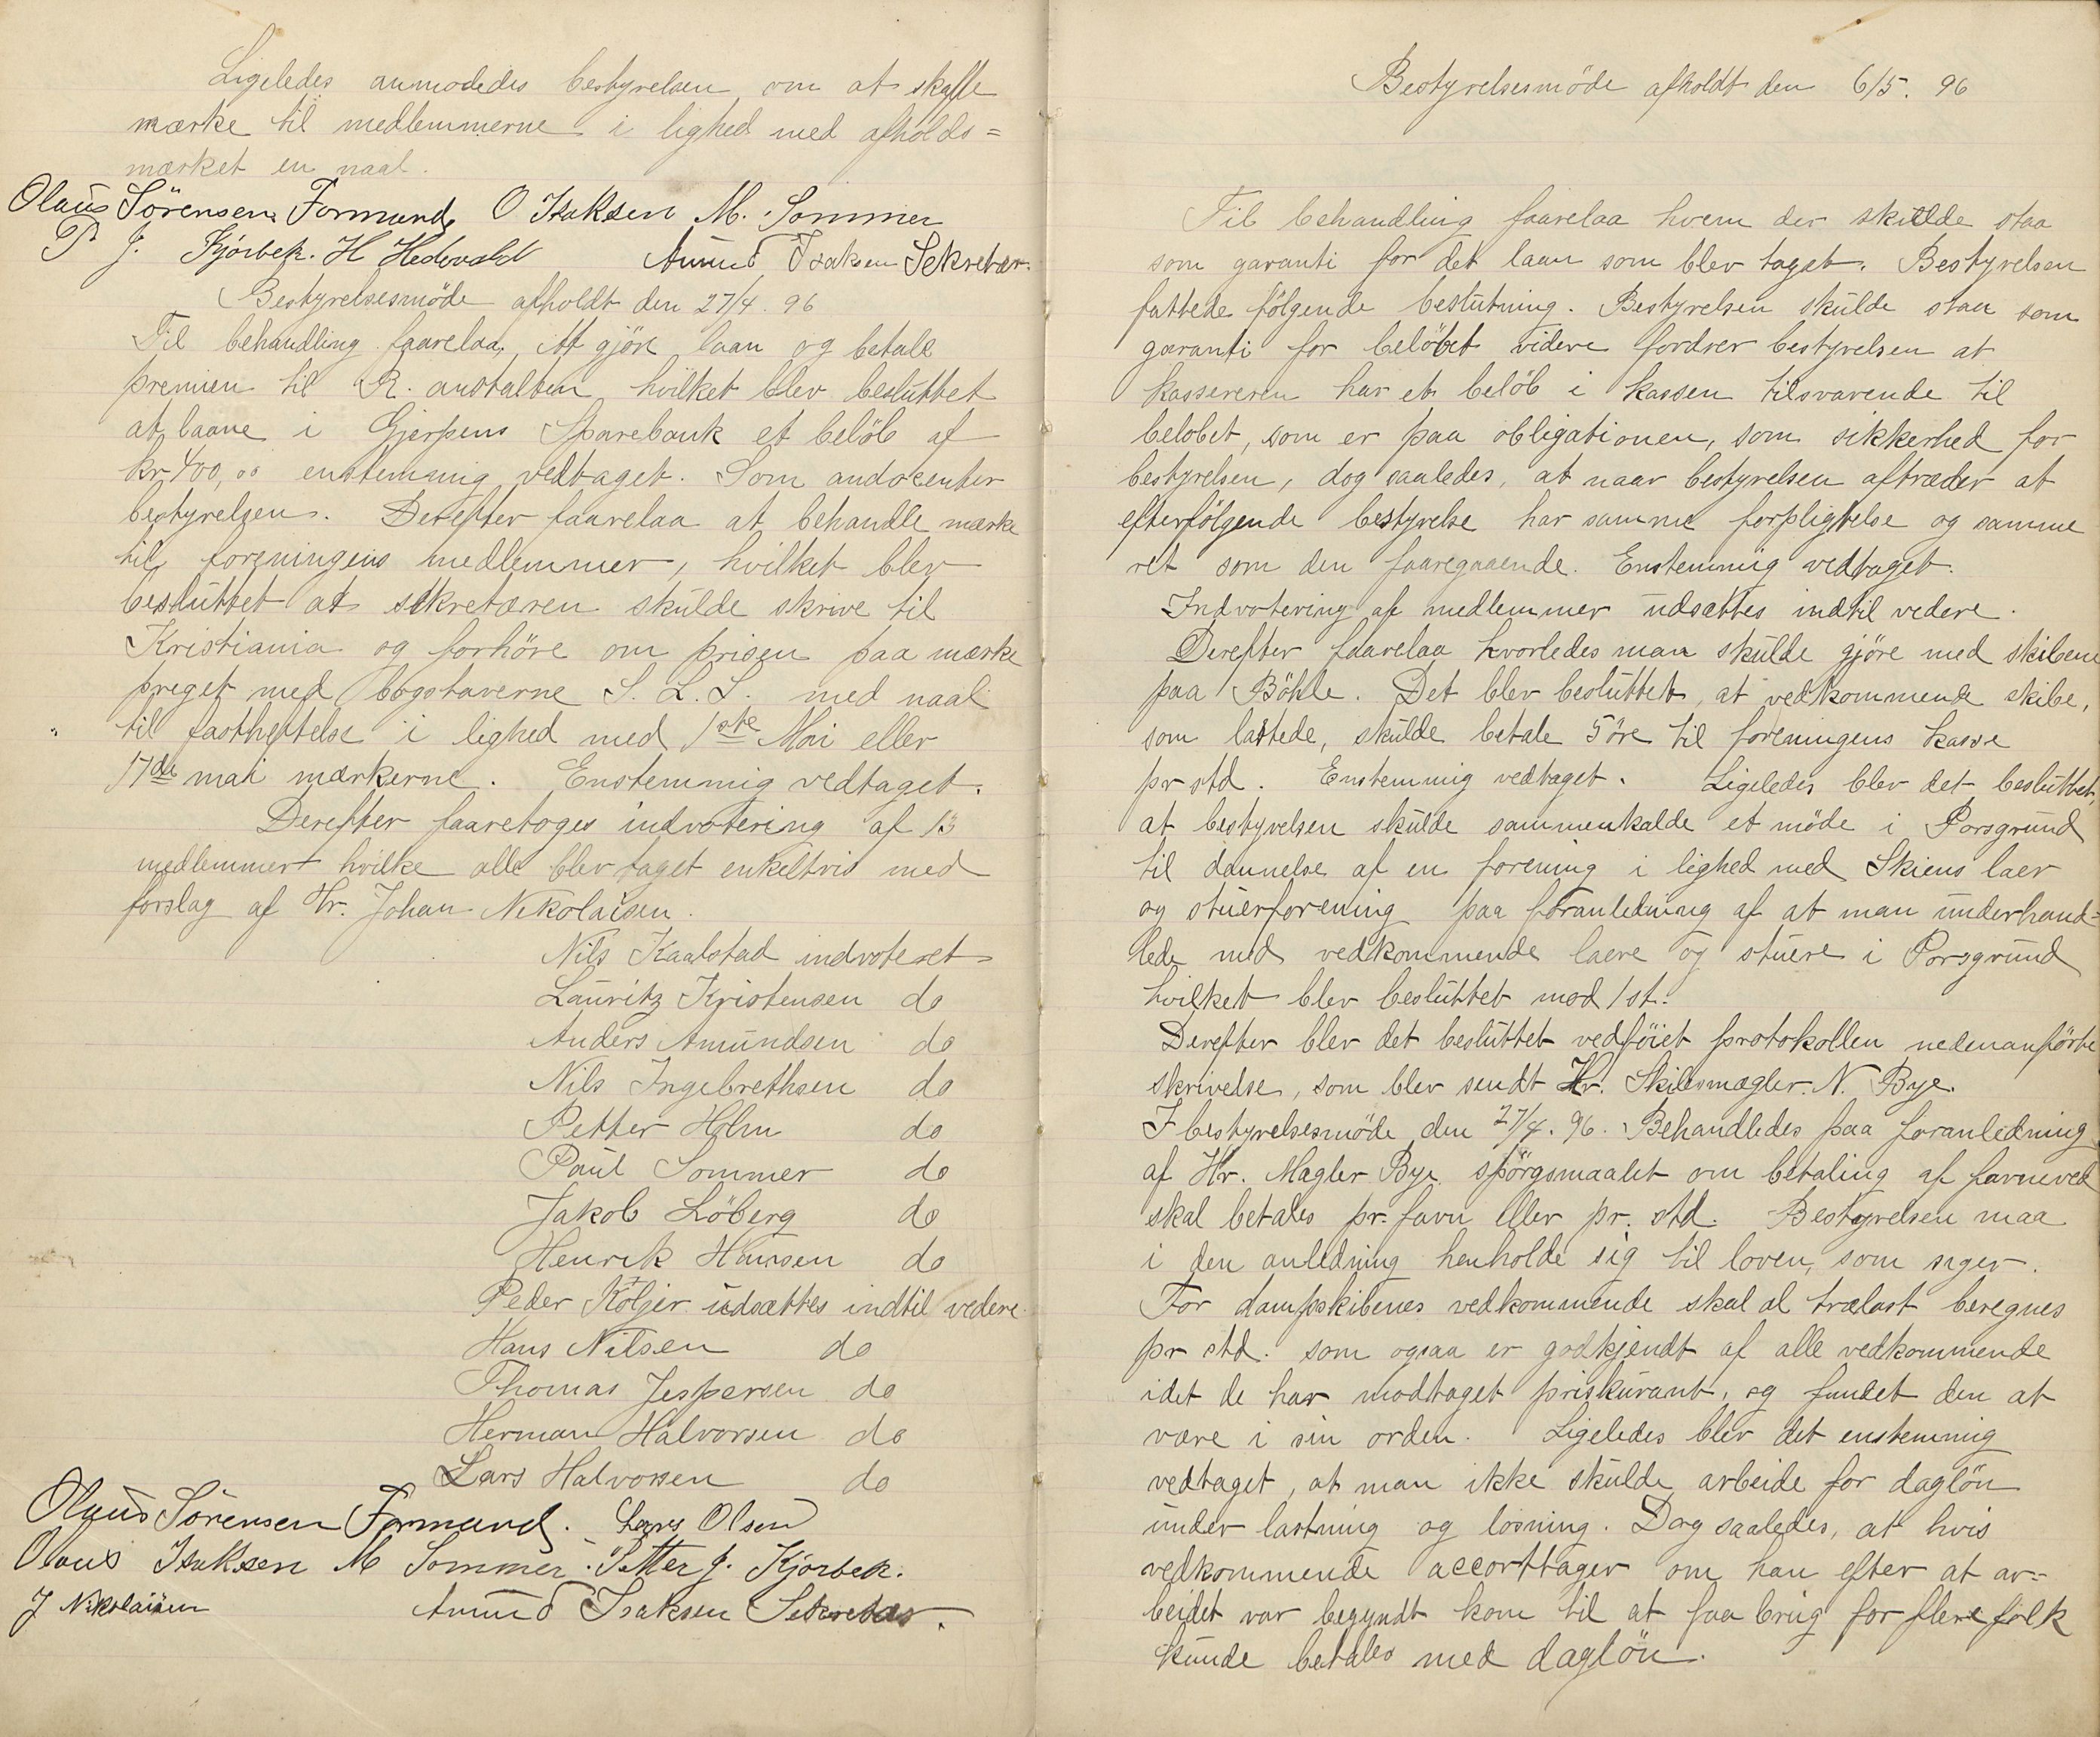 Ligeledes anmodedes bestyrelsen om at skaffe
mærke til medlemmerne i lighed med afholds=
mærket en naal.
Olaus Sörensen Formand O Isaksen M. Sommer
P J. Kjörbek. H Hedevald Amund Isaksen Sekretær.
Bestyrelsesmöde afholdt den 27/4. 96
Til behandling faarelaa, At gjöre laan og betale
premien til R. anstalten hvilket blev besluttet
at laane i Gjerpens Sparebank et belöb af
kr 400,00 enstemmig vedtaget. Som andosenter
bestyrelsen. Derefter faarelaa at behandle mærke
til foreningens medlemmer, hvilket blev
besluttet at sekretæren skulde skrive til
Kristiania og forhöre om prisen paa mærke
preget med bogstaverne S. L. S. med naal
til fastheftelse i lighed med 1ste Mai eller
17de mai mærkerne. Enstemmig vedtaget.
Derefter faaretoges indvotering af 13
medlemmer hvilke alle blev taget enkeltvis med
forslag af Hr. Johan Nikolaisen.
Nils Kaalstad indvoteret
Lauritz Kristensen do
Anders Amundsen do
Nils Ingebrethsen do
Petter Holm do
Paul Sommer do
Jakob Löberg do
Henrik Hansen do
Peder Kötjer udsættes indtil vedere
Hans Nilsen do
Thomas Jespersen do
Herman Halvorsen do
Lars Halvorsen do
Olaus Sörensen Formand. Lars Olsen
Olaus Isaksen M Sommer. Petter J. Kjörbek.
J Nikolaisen Amund Isaksen Sekretær.
Bestyrelsesmöde afholdt den 6/5. 96
Til behandling faarelaa hvem der skulde staa
som garanti for det laan som blev taget. Bestyrelsen
fattede fölgende beslutning. Bestyrelsen skulde staa som
garanti for belöbet videre fordrer bestyrelsen at
kassereren har et belöb i kassen tilsvarende til
belobet, som er paa obligationen, som sikkerhed for
bestyrelsen, dog saaledes, at naar bestyrelsen aftræder at
efterfölgende bestyrelse har samme forpligtelse og samme
ret som den faaregaaende. Enstemmig vedtaget.
Indvotering af medlemmer udsættes indtil vedere.
Derefter faarelaa hvorledes man skulde gjöre med skibene
paa Böhle. Det blev besluttet, at vedkommende skibe,
som lastede, skulde betale 5 öre til foreningens kasse
pr std. Enstemmig vedtaget. Ligeledes blev det besluttet,
at bestyrelsen skulde sammenkalde et möde i Porsgrund
til dannelse af en forening i lighed med Skiens laer
og stuerforening paa foranledning af at man underhand=
lede med vedkommende laere og stuere i Porsgrund
hvilket blev besluttet mod 1 st.
Derefter blev det besluttet vedföiet protokollen nedenanförte
skrivelse, som blev sendt Hr. Skibsmægler. N. Bye.
I bestyrelsesmöde den 27/4. 96. Behandledes paa foranledning
af Hr. Mægler Bye spörgsmaalet om betaling af favneved
skal betales pr. favn eller pr. std. Bestyrelsen maa
i den anledning henholde sig til loven, som siger.
For dampskibenes vedkommende skal al trælast beregnes
pr std. som ogsaa er godkjendt af alle vedkommende
idet de har modtaget priskurant, og fundet den at
være i sin orden. Ligeledes blev det enstemmig
vedtaget, at man ikke skulde arbeide for daglön
under lastning og losning. Dog saaledes, at hvis
vedkommende accorttager om han efter at ar=
beidet var begyndt kom til at faa brug for flere folk
kunde betales med daglön.